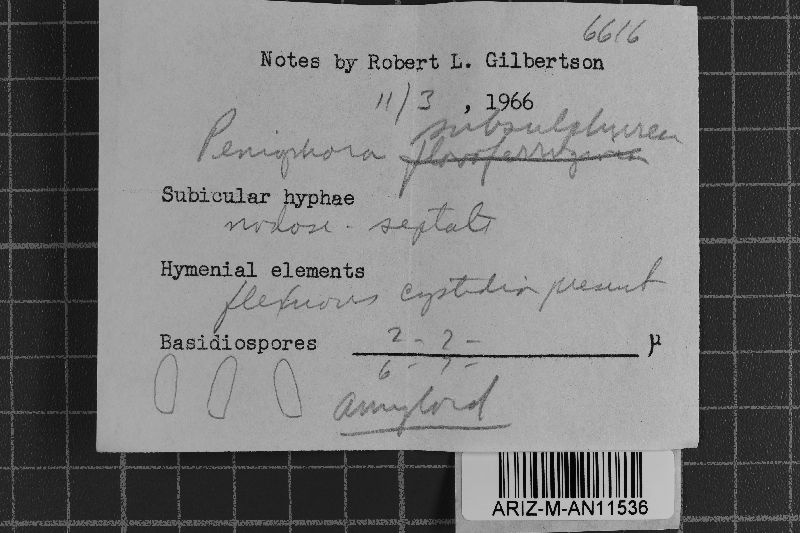 6616
Notes by Robert L. Gilbertson
11/3, 1966
subsulphurea
Peniophora
Subicular hyphae
nodose-septate
Hymenial elements
flexuous cystidia present
Basidiospores 2- 2- μ
6- 7-
amyloid
ARIZ-M-AN11536